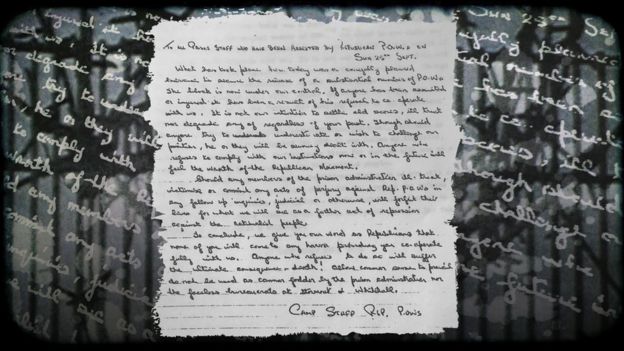 To all Prison Staff who have been arrested by Republican P.O.W.s on
Sun 25th Sept.
What has taken place here today was a carefully planned
exercise to secure the release of a substantial number of P.O.W.s
The block is now under our control. If anyone has been assaulted
or injured it has been a result of his refusal to co-operate
with us. It is not our intention to settle old scores, ill treat
nor degrade any of regardless of your past. Though should
anyone try to underestimate or wish to challenge our
position, he or they will be severely dealt with. Anyone who
refuses to comply with our instructions now or in the future will
feel the wrath of the Republican Movement.
Should any members of the prison administration ill-treat,
victimise or commit any acts of perjury against Rep. P.O.W.s in
any follow up inquiries, judicial or otherwise, will forfeit their
lives for what we will see as a further act of repression
against the nationalist people.
To conclude, we give you our word as Republicans that
none of you will come to any harm providing you co-operate
fully with us. Anyone who refuses to do so will suffer
the ultimate consequence - death! Allow common sense to prevail
do not be used as cannon fodder by the prison administration nor
the faceless bureaucrats at Stormont or Whitehall.
Camp Staff Rep. P.O.W.s